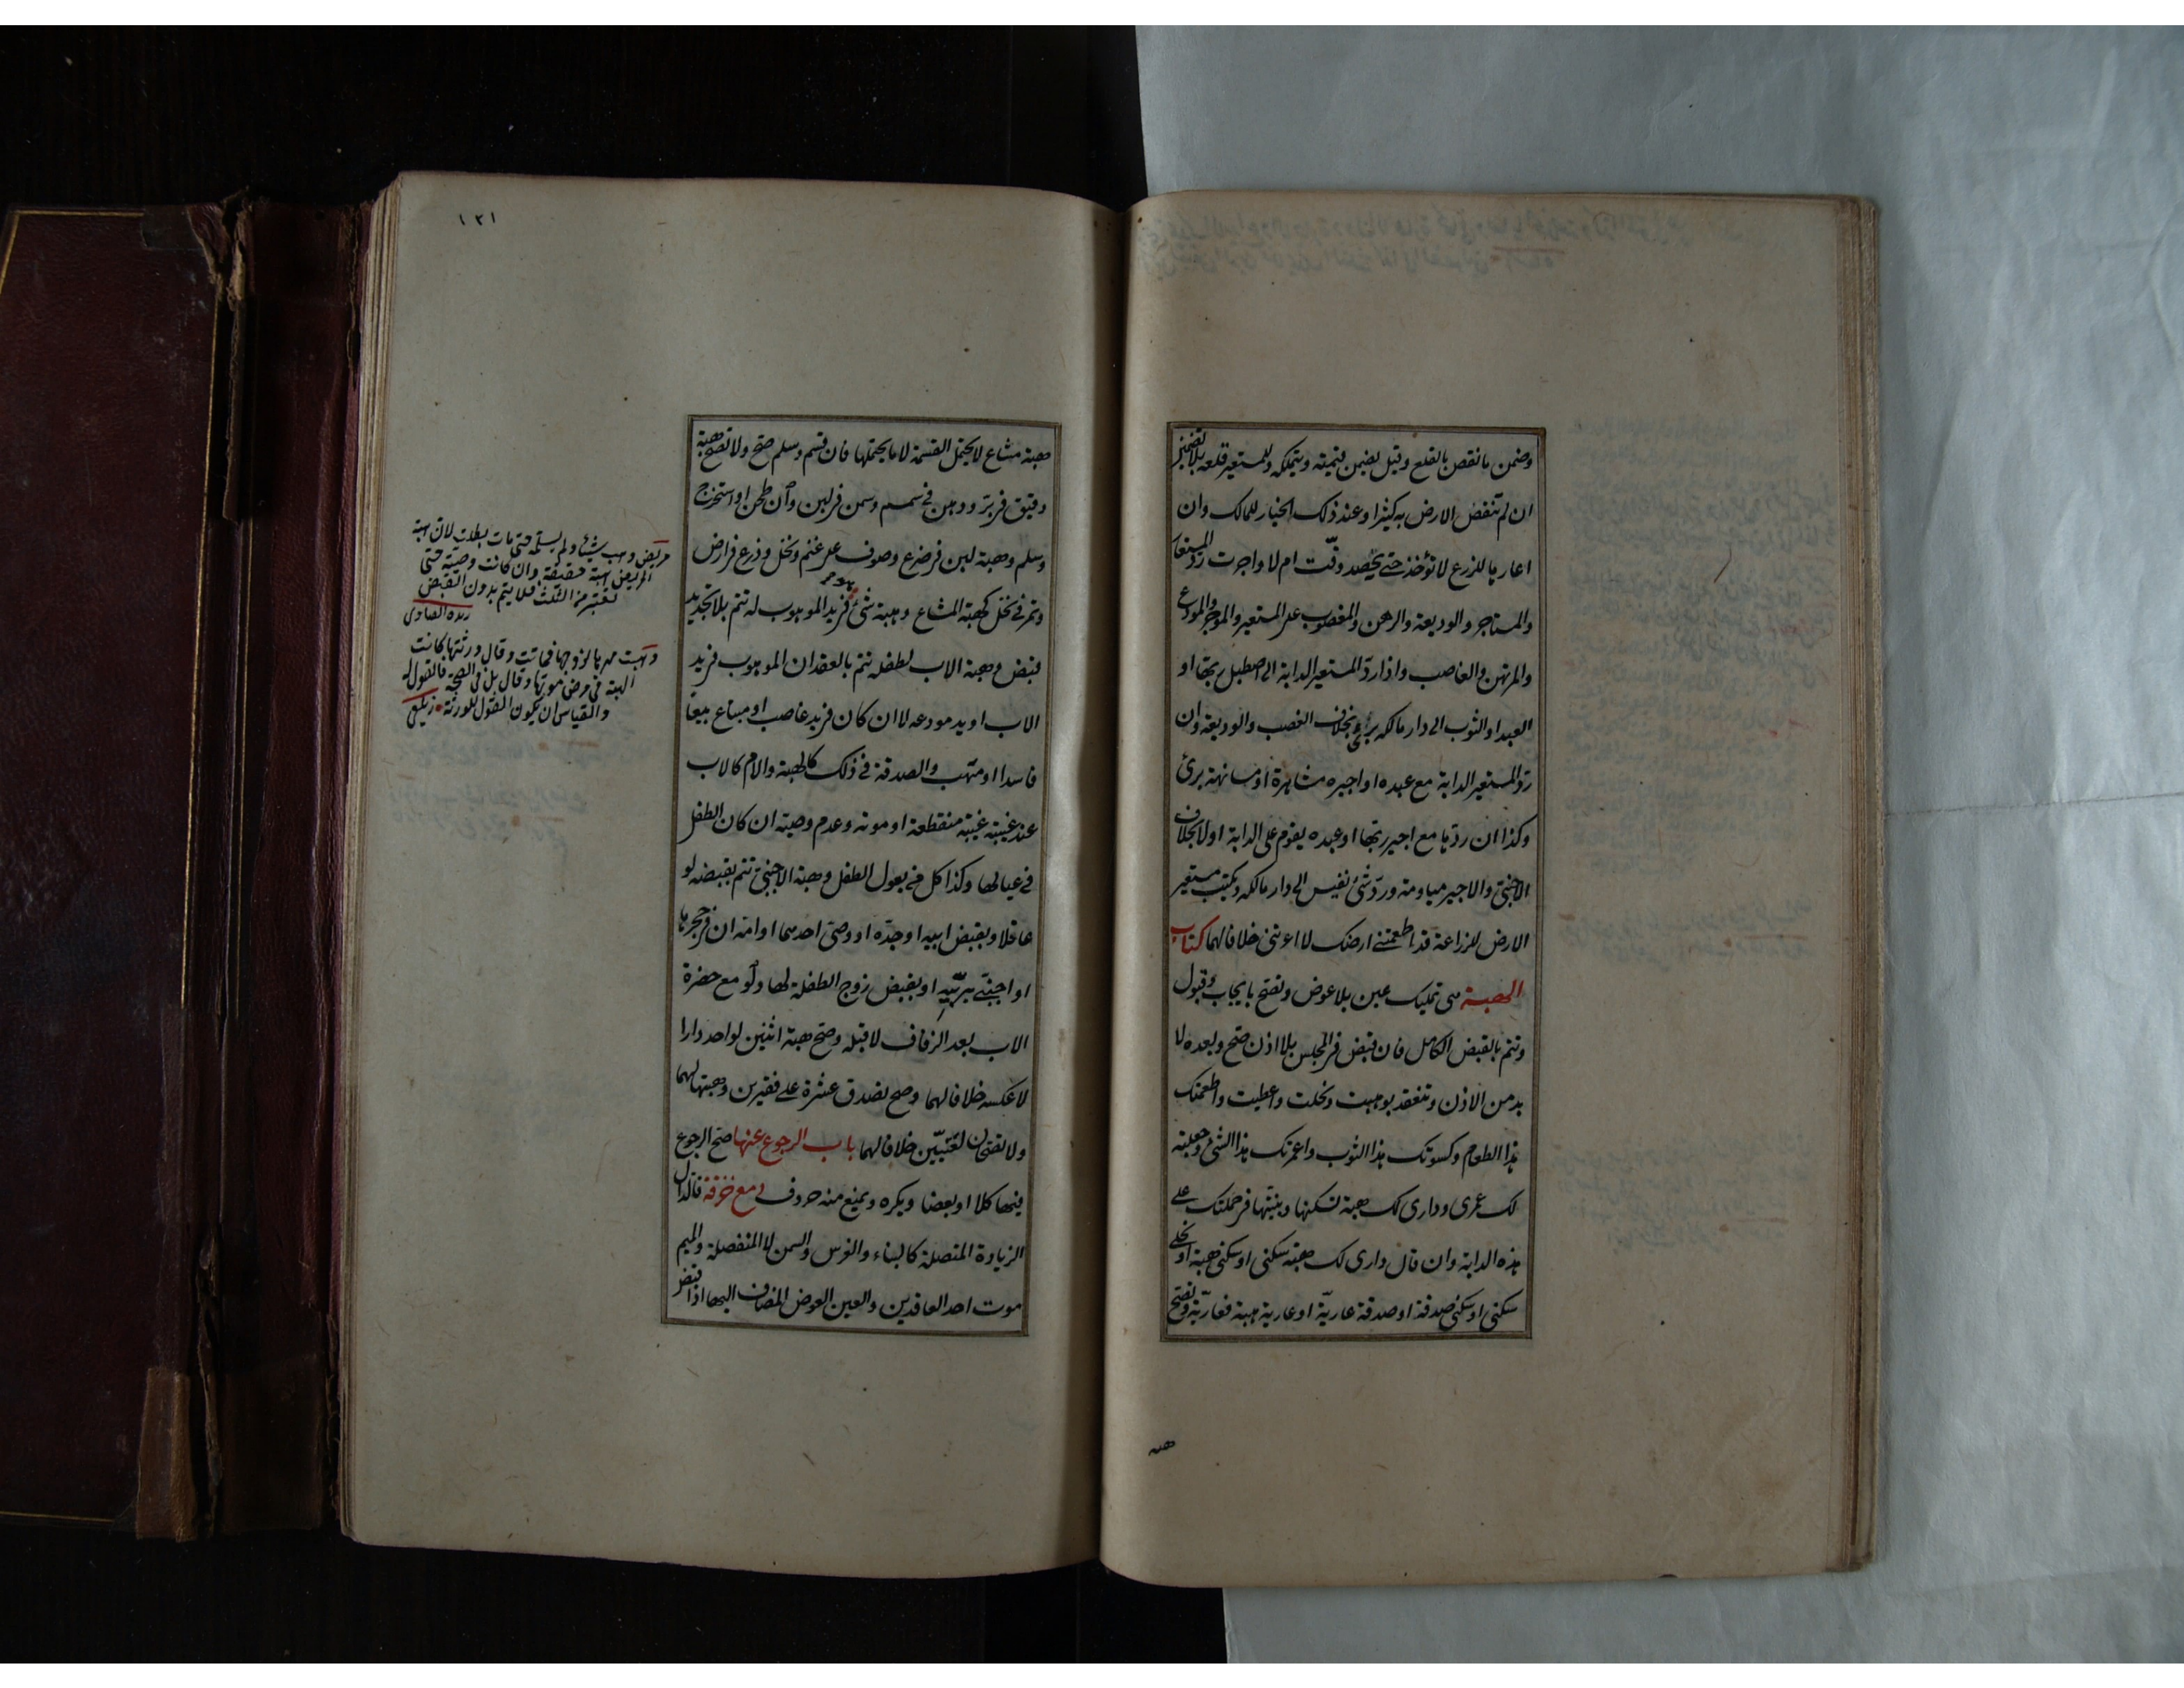 وضمن ما نقص بالقلع وقيل يضمن قيمته ويتملكه وللمستعير قلعه بلا تضمين
ان لم تنقص الارض به كثيرا وعند ذلك الخيار للمالك وان
اعارها للزرع لا تؤخذ حتى يحصد وقّت ام لا واجرت ردّ المستعار
والمستاجر والوديعة والرهن والمغصوب على المستعير والموجر والمودع
والمرتهن والغاصب واذا ردّ المستعير الدابة الى اصطبل ربها او
العبد او الثوب الى دار مالكه برئ بخلاف الغصب والوديعة وان
ردّ المستعير الدابة مع عبده او اجيره مشاهرة او مسانهة برئ
وكذا ان ردّها مع اجير ربّها او عبده يقوم على الدابة او لا بخلاف
الاجنبيّ والاجير مياومة وردّ شئ نفيس الى دار مالكه ويكتب مستعير
الارض للزراعة قد اطعمتنى ارضك لا اعرتنى خلافا لهما كتاب
الهبة هى تمليك عين بلا عوض وتصح بايجاب وقبول
وتتم بالقبض الكامل فان قبض فى المجلس بلا اذن صحّ وبعده لا
بد من الاذن وتنعقد بوهبت ونحلت واعطيت واطعمتك
هذا الطعام وكسوتك هذا الثوب واعمرتك هذا الشئ وجعلته
لك عمرى ودارى لك هبة تسكنها وبنيّتها فى حملتك على
هذه الدابة وان قال دارى لك هبة سكنى او سكنى هبة او نحلى
سكنى او سكنى صدقة او صدقة عاريّة او عارية هبة فعاريّة وتصح
هبة
١٢١
هبة مشاع لا يحتمل القسمة لا ما يحتملها فان قسم وسلم صحّ ولا تصح هبة
دقيق فى برّ ودهن فى سمسم وسمن فى لبن وان طحن او استخرج
وسلم وهبة لبن فى ضرع وصوف على غنم ونخل وزرع فى ارض
وتمر فى نخل كهبة المشاع وهبة شئ هو فى يد الموهوب له تتم بلا تجديد
قبض وهبة الاب لطفله تتم بالعقد ان الموهوب فى يد
الاب او يد مودعه لا ان كان فى يد غاصب او مبتاع بيعا
فاسدا او متهب والصدقة فى ذلك كالهبة والام كالاب
عند غيبته غيبة منقطعة او موته وعدم وصيته ان كان الطفل
فى عيالها وكذا كل من يعول الطفل وهبة الاجنبيّ تتم بقبضه لو
عاقلا وبقبض ابيه او جدّه او وصىّ احدهما او امّه ان فى حجرها
او اجنبيّ يربّيه او بقبض زوج الطفلة لها ولو مع حضرة
الاب بعد الزفاف لا قبله وصحّ هبة اثنين لواحد دارا
لا عكسه خلافا لهما وصح تصدق عشرة على فقيرين وهبتها لهما
ولا تصحان لغنيّين خلافا لهما باب الرجوع عنها صحّ الرجوع
فيها كلا او بعضا ويكره ويمنع منه حروف دمع خزقة فالدال
الزيادة المتصلة كالبناء والغرس والسمن لا المنفصلة والميم
موت احد العاقدين والعين العوض المضاف اليها اذا قبض
مريض وهب شيئا ولم يسلمه حتى مات بطلت لان هبة
المريض هبة حقيقة وان كانت وصيّة حتى
تعتبر من الثلث فلا يتم بدون القبض
وهبت مهرها لزوجها فماتت وقال ورثتها كانت
الهبة فى مرض موتها وقال بل فى الصحة فالقول له
والقياس ان يكون القول للورثة زيلعى